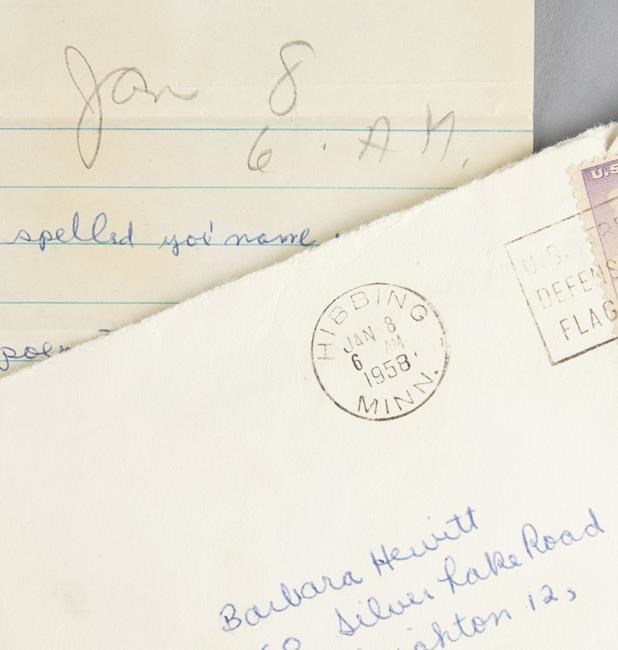 Jan 8
6 A.M.
spelled yo' name
HIBBING
JAN 8
6 AM
1958
MINN.
U.S.
U.S.
DEFENS
FLAG
Barbara Hewitt
Silver Lake Road
12,